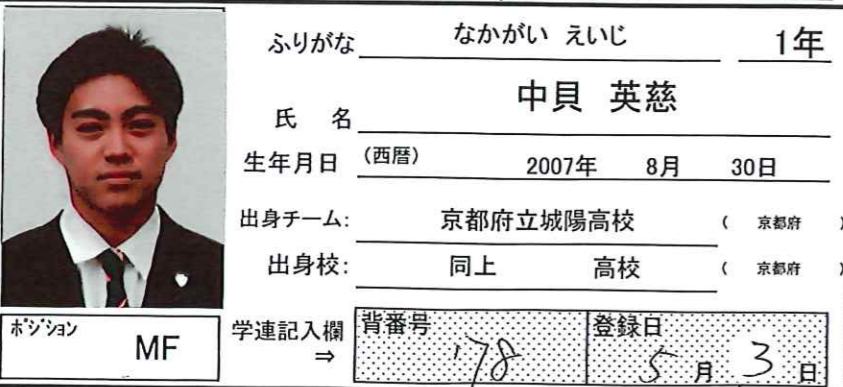 ふりがな なかがい えいじ 1年
氏 名 中貝 英慈
生年月日 (西暦) 2007年 8月 30日
出身チーム: 京都府立城陽高校 ( 京都府 )
出身校: 同上 高校 ( 京都府 )
ポジション MF
学連記入欄 ⇒ 背番号 78 登録日 5月3日